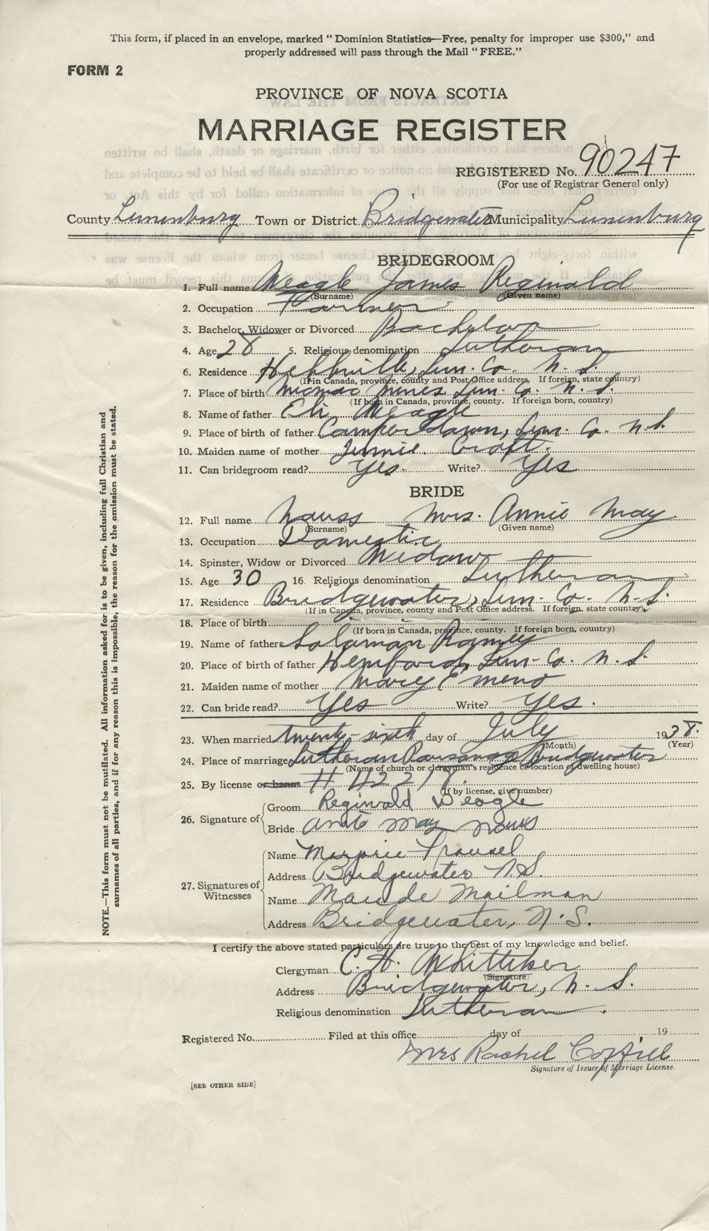 This form, if placed in an envelope, marked "Dominion Statistics—Free, penalty for improper use $300," and
properly addressed will pass through the Mail "FREE."
FORM 2
PROVINCE OF NOVA SCOTIA
MARRIAGE REGISTER
REGISTERED No. 90247
(For use of Registrar General only)
County Lunenburg Town or District Bridgewater Municipality Lunenburg
BRIDEGROOM
1. Full name Weagle James Reginald
(Surname) (Given name)
2. Occupation Farmer
3. Bachelor, Widower or Divorced Bachelor
4. Age 28 5. Religious denomination Lutheran
6. Residence Hebbville, Lun. Co. N. S.
(If in Canada, province, county and Post Office address. If foreign, state country)
7. Place of birth Micmac Mines Lun. Co. N. S.
(If born in Canada, province, county. If foreign born, country)
8. Name of father Eli Weagle
9. Place of birth of father Camperdown, Lun. Co. N.S.
10. Maiden name of mother Jennie Croft.
11. Can bridegroom read? Yes. Write? Yes
BRIDE
12. Full name Nauss Mrs. Annie May
(Surname) (Given name)
13. Occupation Domestic
14. Spinster, Widow or Divorced Widow
15. Age 30 16. Religious denomination Lutheran
17. Residence Bridgewater, Lun. Co. N. S.
(If in Canada, province, county and Post Office address. If foreign, state country)
18. Place of birth
(If born in Canada, province, county. If foreign born, country)
19. Name of father Solaman Ramey
20. Place of birth of father Hemford, Lun. Co. N. S.
21. Maiden name of mother Mary Emeno
22. Can bride read? Yes Write? Yes.
23. When married twenty-sixth day of July 1938.
(Month) (Year)
24. Place of marriage Lutheran Parsonage Bridgewater
(Name of church or clergyman's residence or location of dwelling house)
25. By license or banns H
(If by license, give number)
26. Signature of
Groom Reginald Weagle
Bride May
27. Signatures of Witnesses
Name Marjorie
Address Bridgewater N.S.
Name Maude Mailman
Address Bridgewater, N.S.
I certify the above stated particulars are true to the best of my knowledge and belief.
Clergyman C. H. Whitteker
(Signature)
Address Bridgewater, N. S.
Religious denomination Lutheran.
Registered No. Filed at this office day of 19
Mrs Rachel Coffill
Signature of Issuer of Marriage License
[SEE OTHER SIDE]
NOTE.—This form must not be mutilated. All information asked for is to be given, including full Christian and
surnames of all parties, and if for any reason this is impossible, the reason for the omission must be stated.